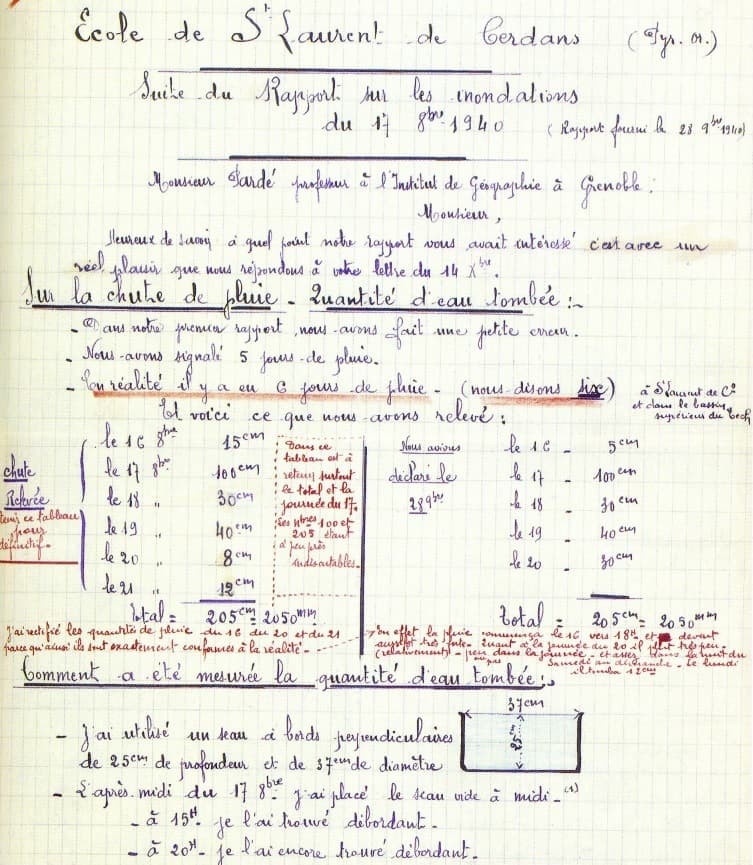 École de St Laurent de Cerdans (Pyr. Or.)
Suite du Rapport sur les inondations
du 17 8bre 1940 (Rapport fourni le 28 9bre 1940)
Monsieur Pardé professeur à l'Institut de Géographie à Grenoble :
Monsieur,
Heureux de savoir à quel point notre rapport vous avait intéressé c'est avec un
réel plaisir que nous répondons à votre lettre du 14 Xbre.
Sur la chute de pluie - Quantité d'eau tombée :-
- Dans notre premier rapport, nous avons fait une petite erreur.
- Nous avons signalé 5 jours de pluie.
- En réalité il y a eu 6 jours de pluie - (nous disons six) à St Laurent de Cs
et dans le bassin
supérieur du Tech
Et voici ce que nous avons relevé :
chute
Relevée
tenez ce tableau
pour
définitif.
le 16 8bre 15cm
le 17 8bre 100cm
le 18 " 30cm
le 19 " 40cm
le 20 " 8cm
le 21 " 12cm
Total = 205cm = 2050mm
Dans ce
tableau est à
retenir surtout
le total et la
journée du 17.
Les nbres 100 et
205 étant
à peu près
indiscutables.
Nous avions
déclaré le
28 9bre
le 16 - 5cm
le 17 - 100cm
le 18 - 30cm
le 19 - 40cm
le 20 - 30cm
total = 205cm = 2050mm
J'ai rectifié les quantités de pluie du 16 du 20 et du 21
parce qu'ainsi ils sont exactement conformes à la réalité -
En effet la pluie commença le 16 vers 18h et devint
aussitôt très forte - Quant à la journée du 20 il plut très peu
(relativement) - peu dans la journée - et assez dans la nuit du
Samedi au dimanche - Le lundi
il tomba 12cm
Comment a été mesurée la quantité d'eau tombée :-
37cm
25cm
- J'ai utilisé un seau à bords perpendiculaires
de 25cm de profondeur et de 37cm de diamètre
- L'après midi du 17 8bre j'ai placé le seau vide à midi - (1)
- à 15H je l'ai trouvé débordant -
- à 20H - je l'ai encore trouvé débordant -